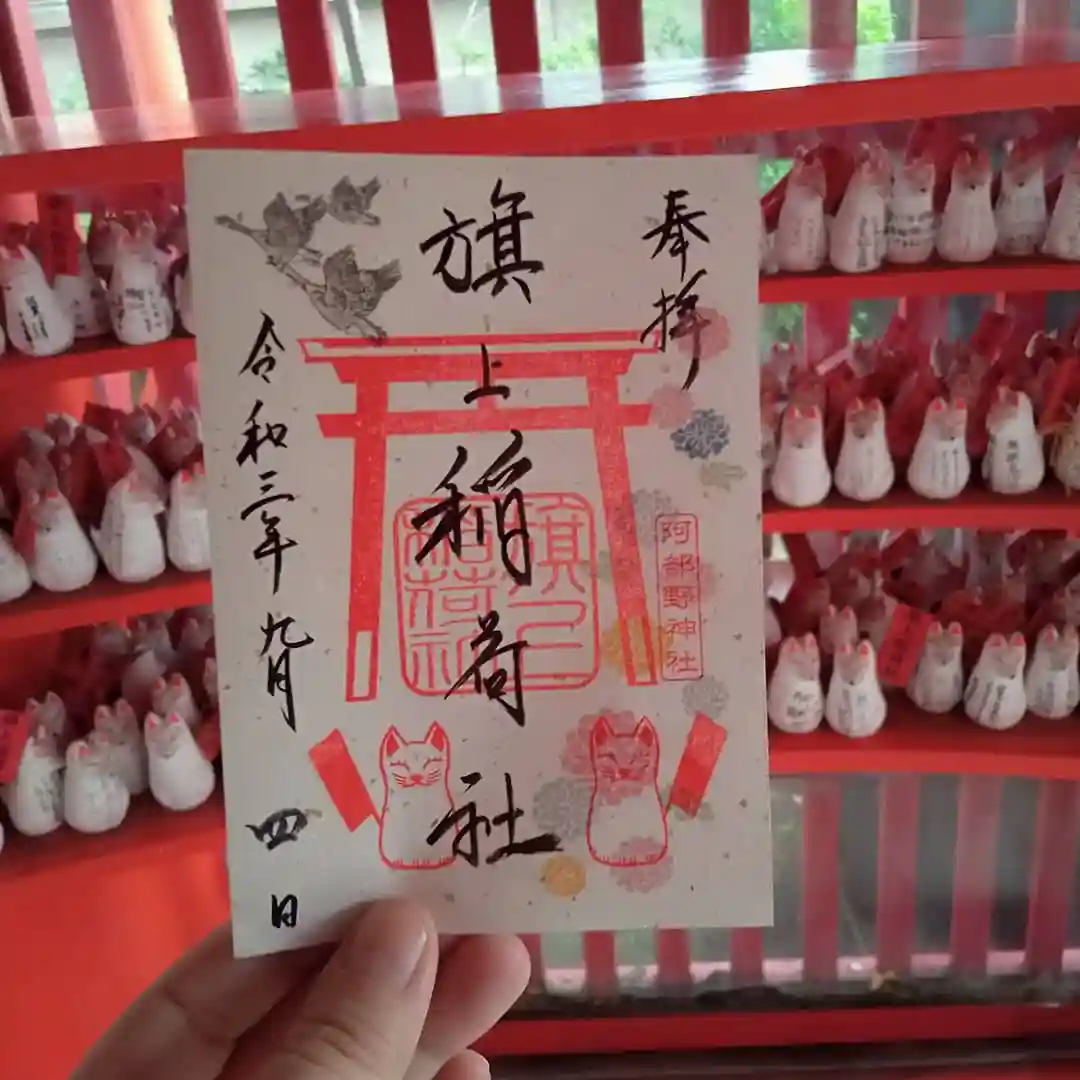 奉拝
旗上稲荷社
旗上
稲荷社
阿部野神社
令和三年九月四日